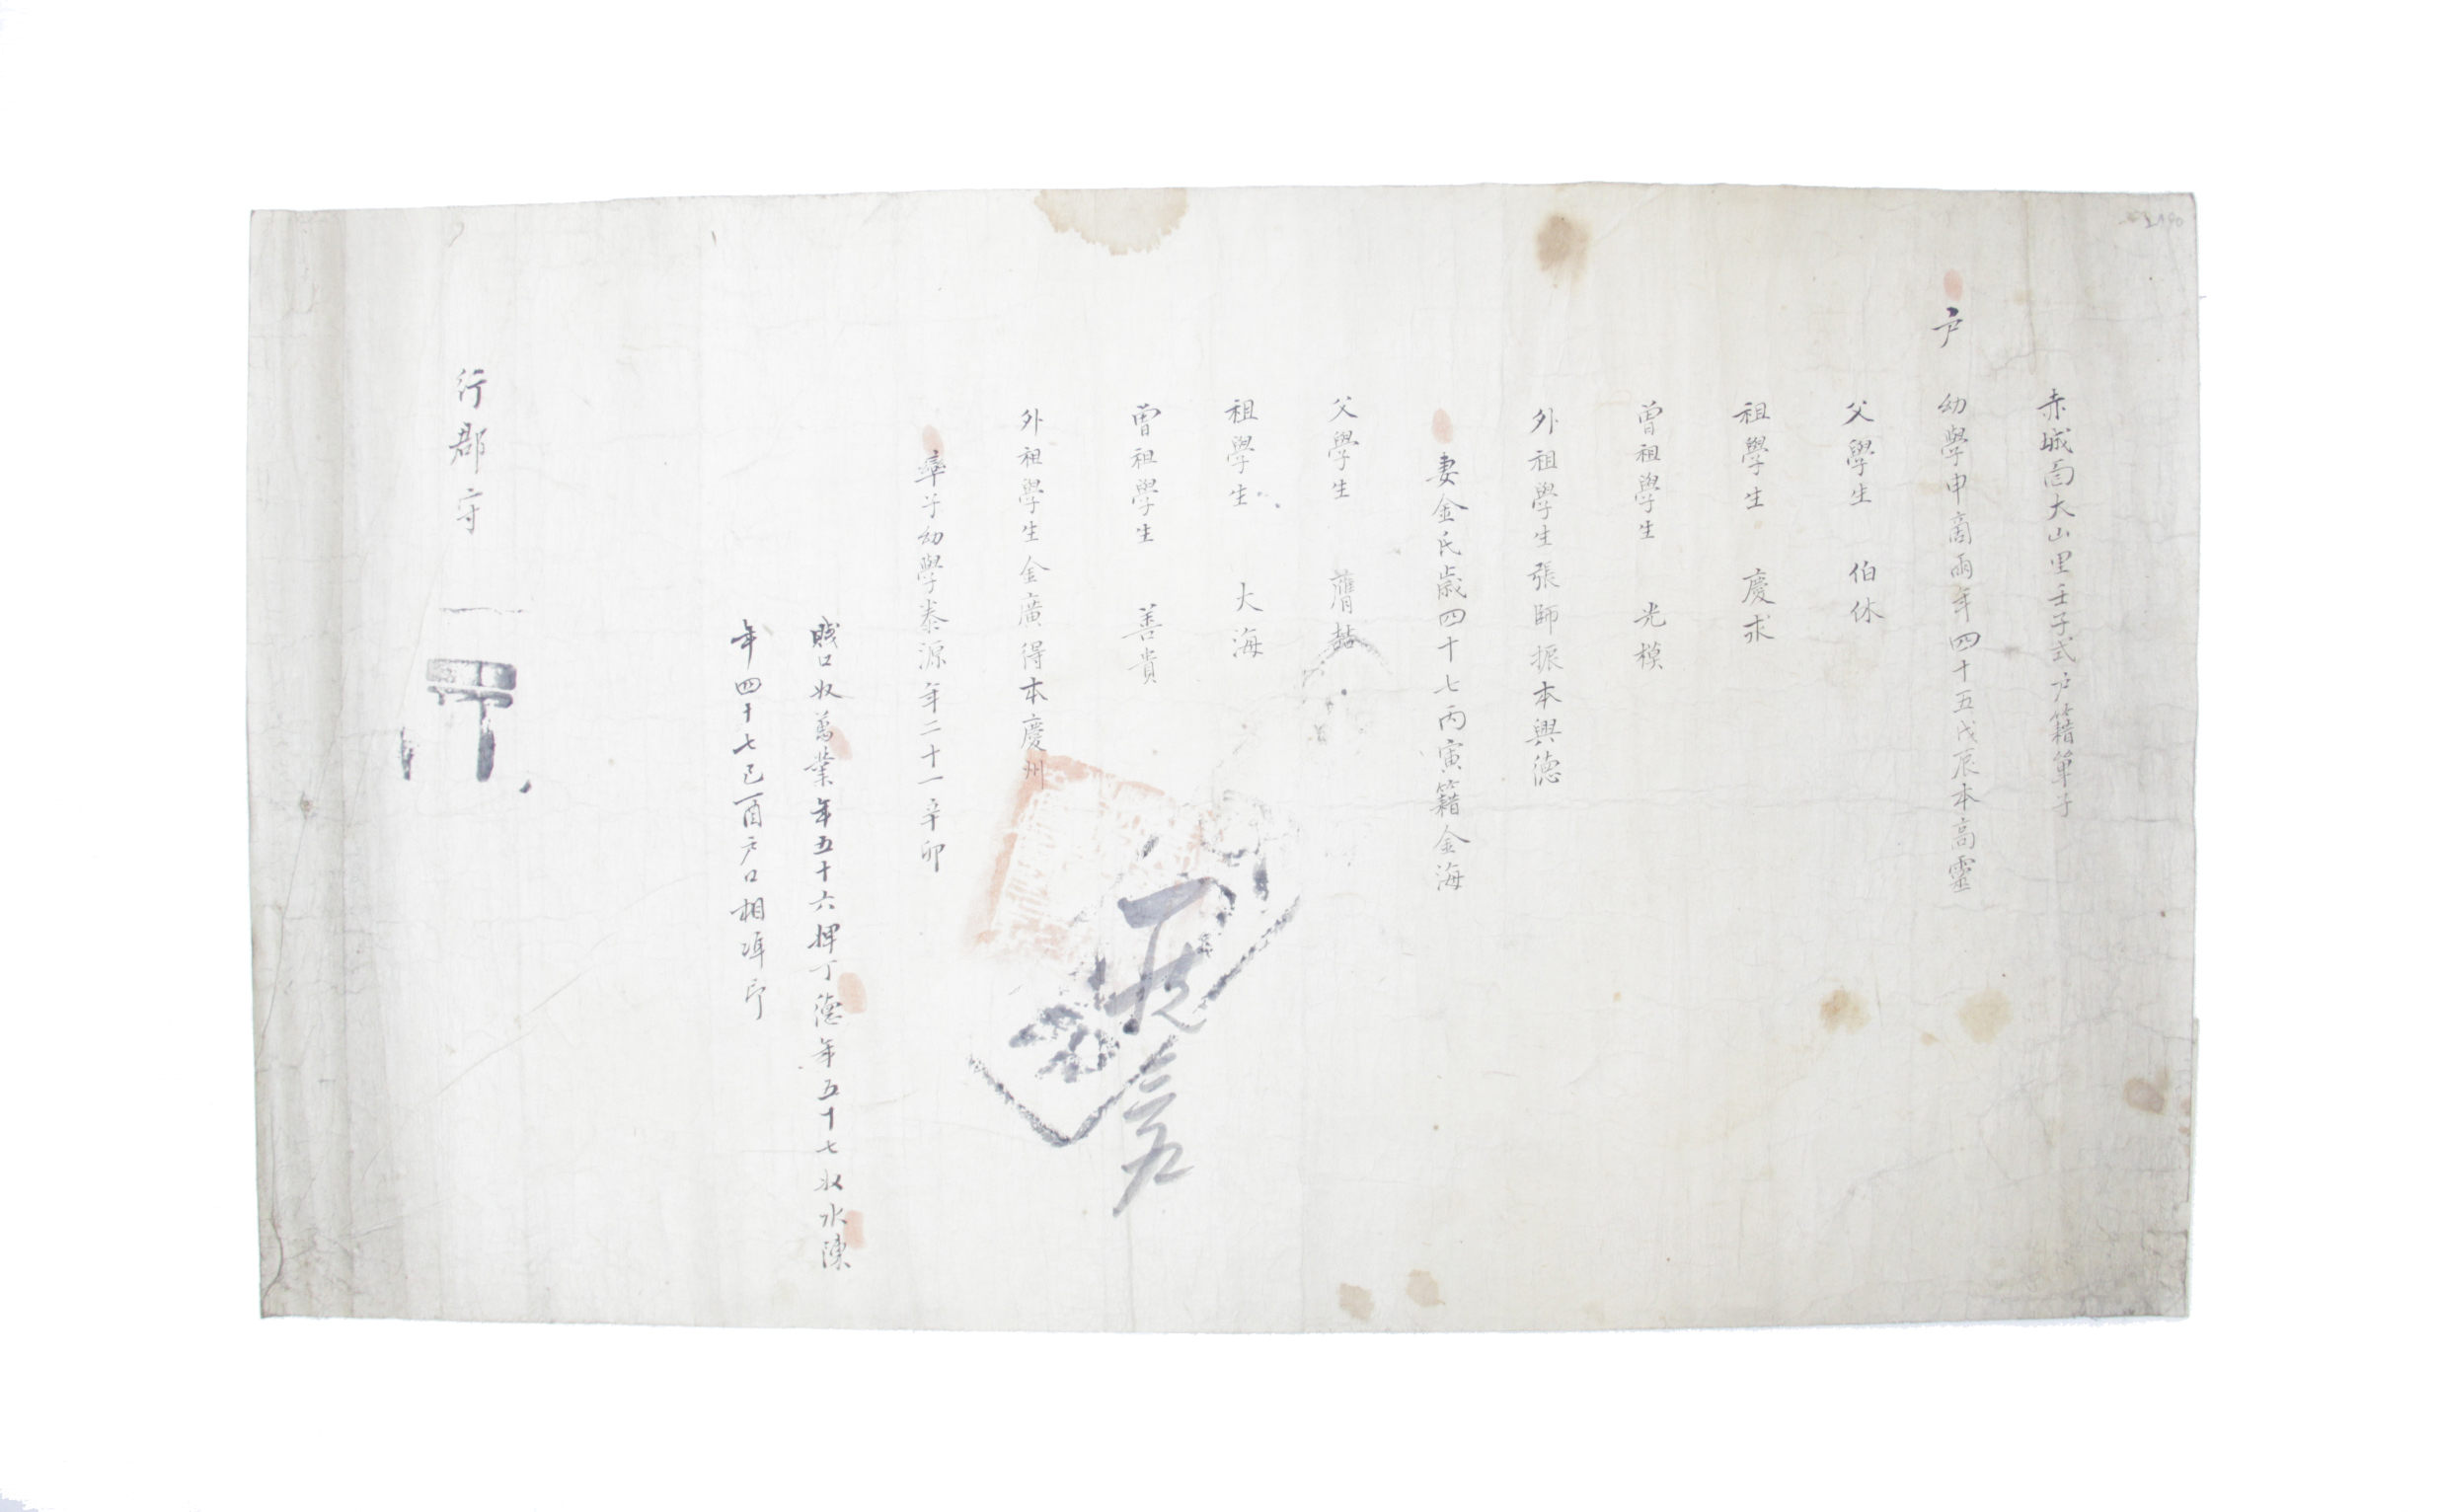 赤城面大山里壬子式户籍單子
户 幼學申商雨年四十五戊辰本高靈
父學生 伯休
祖學生 慶求
曾祖學生 光模
外祖學生張師振本興德
妻金氏歲四十七丙寅籍金海
父學生 膺喆
祖學生 大海
曾祖學生 善貴
外祖學生金廣得本慶州
率子幼學泰源年二十一辛卯
賤口奴萬業年五十六婢丁德年五十七奴水陳
年四十七己酉户口相準印
行郡守